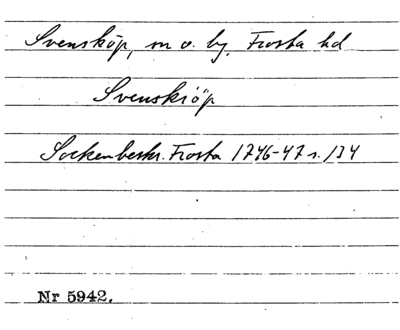 Svensköp, sn o. by, Frosta hd
Svenskiöp
Sockenbeskr. Frosta 1746-47 s. 134
Nr 5942.